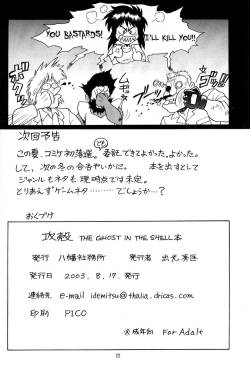 YOU BASTARDS!
I'LL KILL YOU!!
次回予告
この夏、コミケ初落選。委託できてよかった。よかった。
して、次の冬の合否やいかに。 本を出すとして
ジャンルもネタも現時点では未定。
とりあえずゲームネタ………でしょうか…?
おくづけ
攻殻 THE GHOST IN THE SHELL本
発行 八幡社務所 発行者 出光英匡
発行日 2003. 8. 17. 発行
連絡先 e-mail idemitsu@thalia.dricas.com
印刷 PICO
※成年向 For Adalt